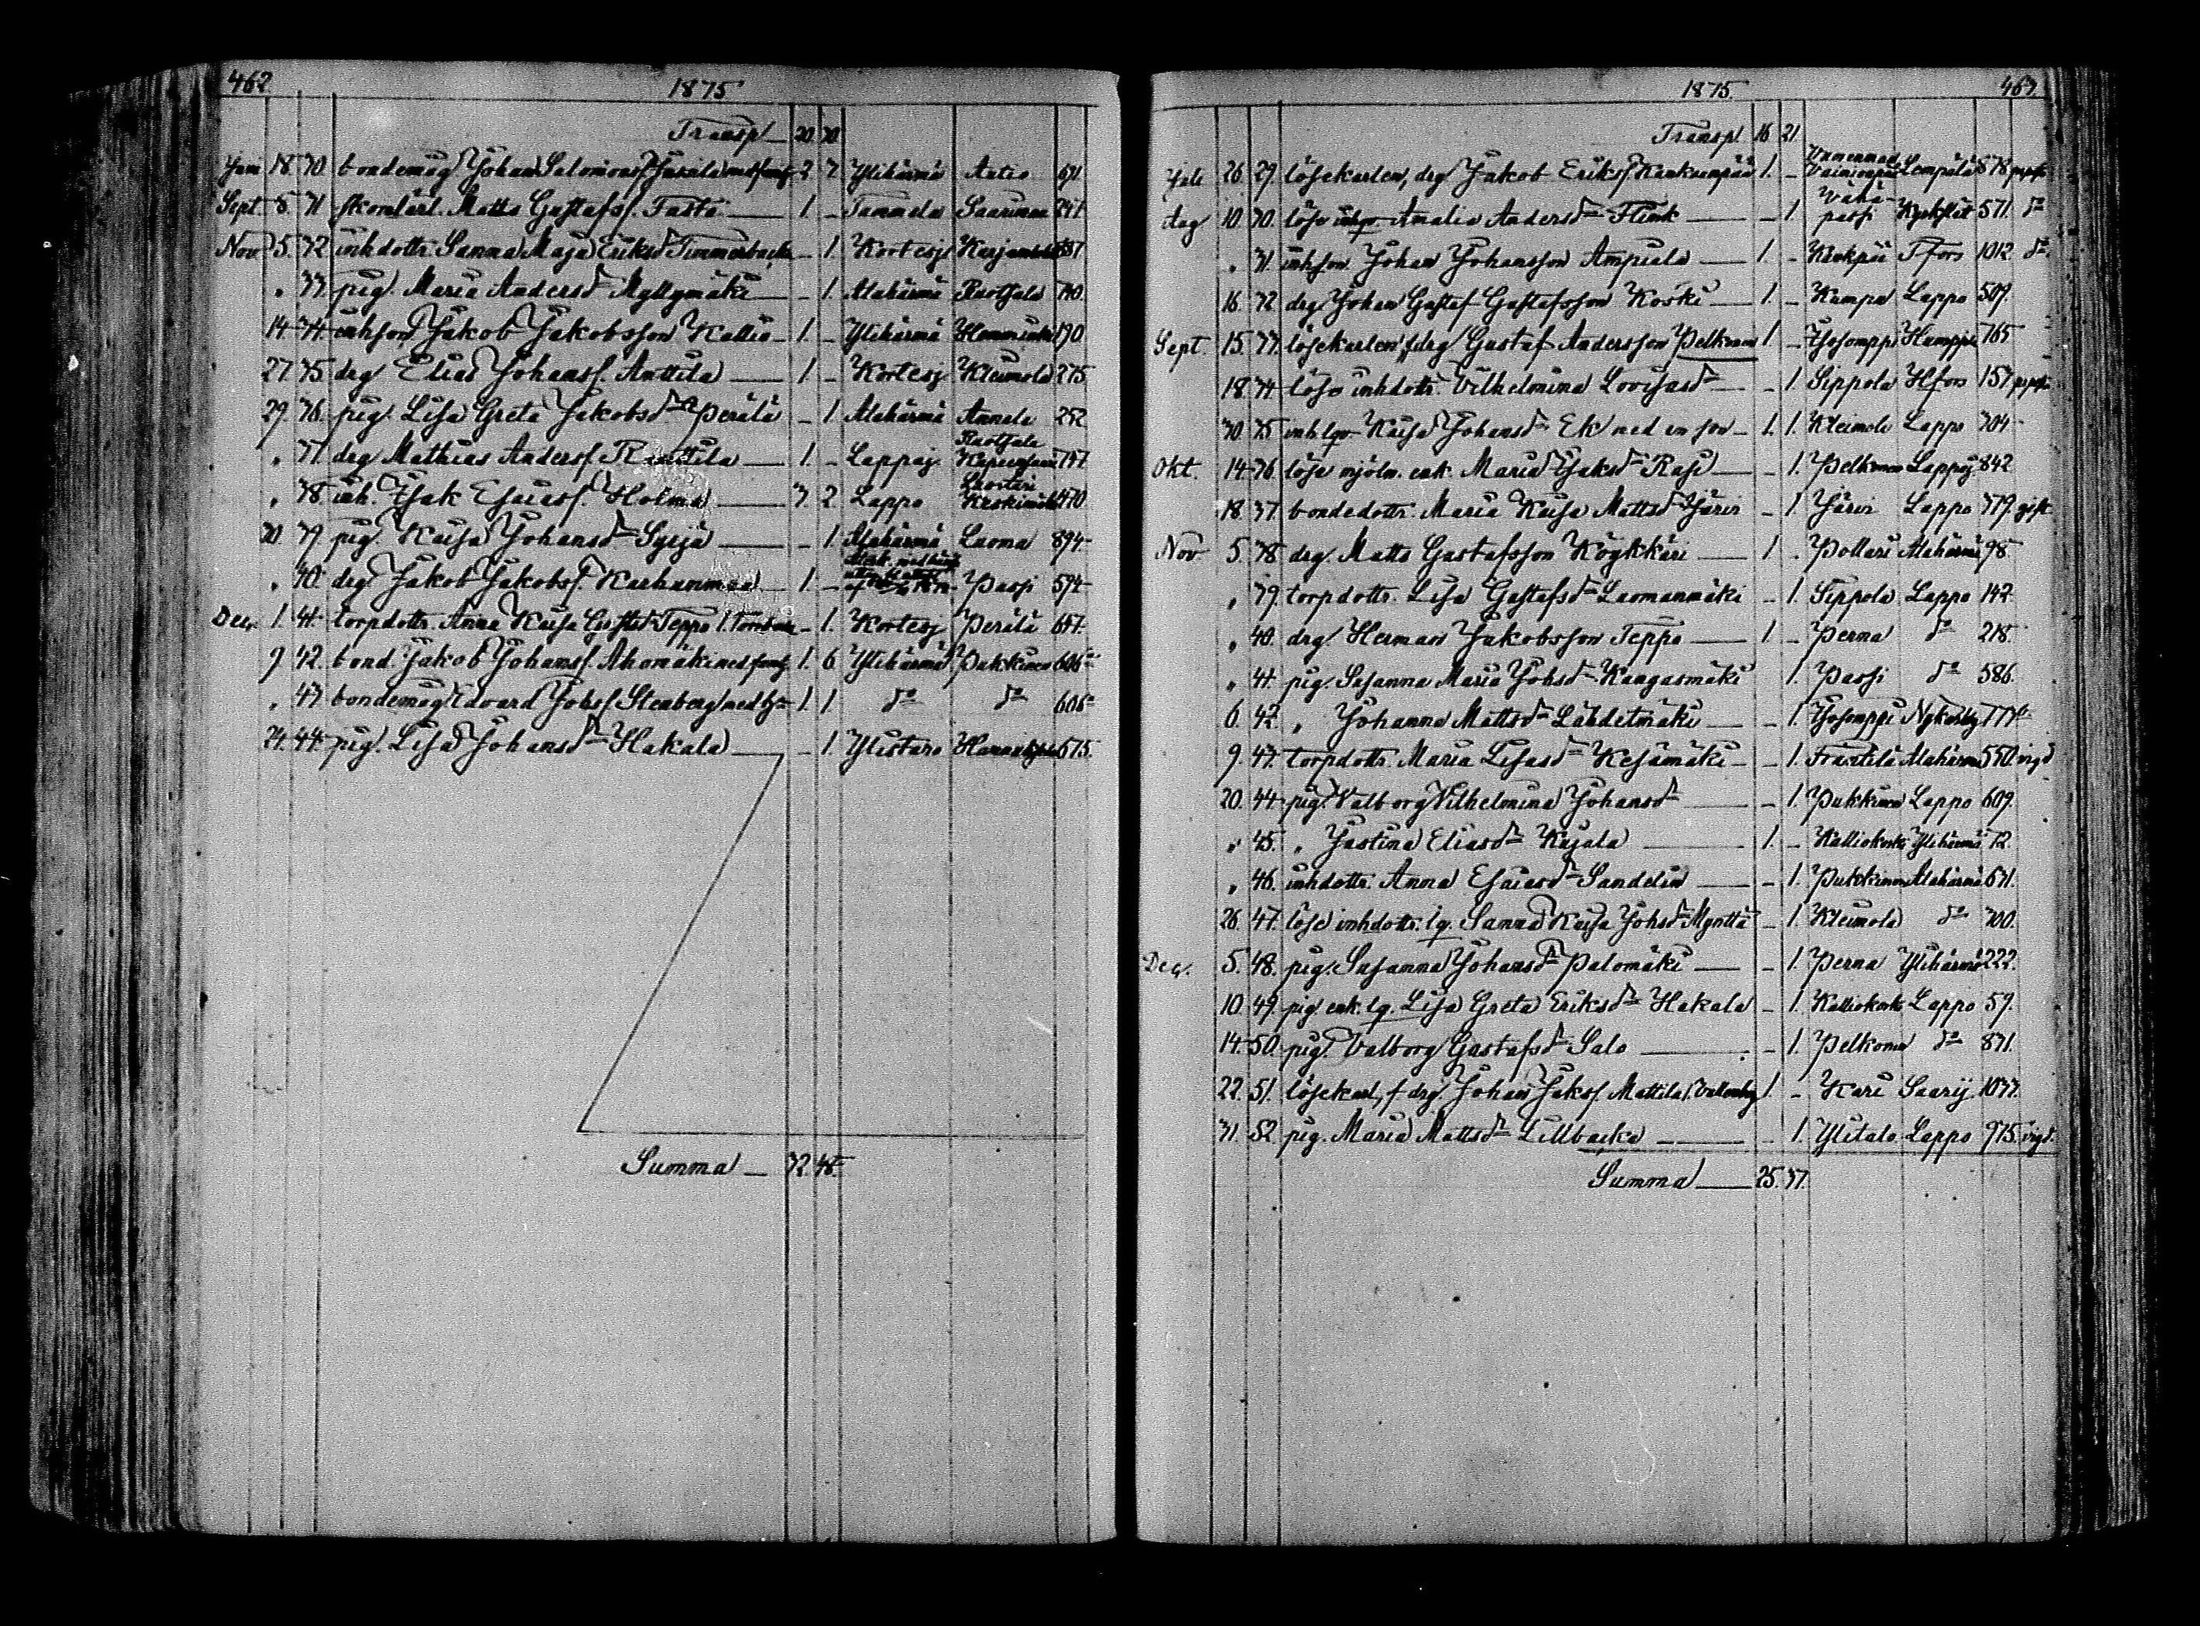 462 1875
Transp. 20 30
Juni 18. 30. bondemåg Johan Salomonss. med familj 2 7 Ylihärmä Antio
Sept. 8. 31. Matts Gustafss. Tasta 1. – Tammela Saarimaa 241.
Nov. 5. 32. inhdottr. Sanna Maja Eriksdr Timmerbacka – 1. Kortesj.
" 33. pig. Maria Andersdr Myllymäki – 1. Alahärmä Ruotsala
14. 34. inhson Jakob Jakobsson Kallio 1. – Ylihärmä 190.
27. 35. drg Elias Johanss. Anttila 1. – Kortesj. Kleimola 275.
29. 36. pig. Lisa Greta Jakobsdr Perälä – 1. Alahärmä Annala 252.
" 37. drg Mathias Anderss. 1. – Lappaj. Ruotsala
" 38. inh. Isak Esaiass. Holma 3. 2. Lappo Keskimäki 470.
30. 39. pig. Kaisa Johansdr Syrjä – 1. Alahärmä Luoma 894.
" 40. drg Jakob Jakobss. Karhunmaa 1. – Passi 594.
Dec. 1. 41. torpdottr. Anna Kaisa Teppo – 1. Kortesj. Perälä 657.
9. 42. bond. Jakob Johanss. Ahomäki med familj 1. 6. Ylihärmä Pukkinen 606.
" 43. bondemåg Edvard Johss. Stenberg med h:u 1. 1. d:o d:o 606.
24. 44. pig. Lisa Johansdr Hakala – 1. Ylistaro 675.
Summa 32. 48.
1875. 463.
Transp. 16 21.
Juli 26. 29. lösekarlen, drg Jakob Erikss. Kankaanpää 1. – Lempälä 878
Aug. 10. 30. lösa Amalia Andersdr Flink – 1. Vähä-
passi Kyrkslät 571. d:o
" 31. inhson Johan Johansson Ampiala 1. – Karkpää Tfors 1012. d:o
16. 32. drg. Johan Gustaf Gustafsson Koski 1. – Kampa Lappo 509.
Sept. 15. 33. lösekarlen, f.drg Gustaf Andersson Pelkonen 1. – Isosomppi 765
18. 34. lösa inhdottr. Vilhelmina Lovisasdr – 1. Sippola Hfors 157
30. 35. inh. Kaisa Johansdr Ek med en son 1. 1. Kleimola Lappo 704
Okt. 14. 36. lösa mjöln. enk. Maria Isaksdr Rasi – 1. Pelkonen Lappoj. 842
18. 37. bondedottr. Maria Kaisa Mattsdr Järvi – 1. Järvi Lappo 779. gift
Nov. 5. 38. drg. Matts Gustafsson Köykkäri 1. – Pollari Alahärmä 98.
" 39. torpdottr. Lisa Gustafsdr Luomanmäki – 1. Sippola Lappo 142.
" 40. drg. Herman Jakobsson Teppo 1. – Perna d:o 218.
" 41. pig. Susanna Maria Johsdr Kangasmäki 1. Passi d:o 586.
6. 42. " Johanna Mattsdr Lähdetmäki – 1. Isosomppi Nykarleby
9. 43. torpdottr. Maria Lisasdr Kesämäki – 1. Fränttilä Alahärmä 550. vigd
20. 44. pig. Valborg Vilhelmina Johansdr – 1. Pukkinen Lappo 609.
" 45. " Justina Eliasdr Kujala 1. – Kalliokoski Ylihärmä 72.
" 46. inhdottr. Anna Esaiasdr Sandelin – 1. Pukkinen Alahärmä 631.
26. 47. lösa inhdottr. Sanna Kaisa Johsdr Mynttä – 1. Kleimola d:o 700.
Dec. 5. 48. pig. Susanna Johansdr Palomäki – 1. Perna Ylihärmä 222.
10. 49. pig. enk. Lisa Greta Eriksdr Hakala – 1. Kalliokoski Lappo 59.
14. 50. pig. Valborg Gustafsdr Salo – 1. Pelkonen d:o 831.
22. 51. lösekarl, f.drg. Johan Isakss. Mattila 1. – Kari Saarij. 1033.
31. 52. pig. Maria Mattsdr Lillbacka – 1. Ylitalo Lappo 975. vigd.
Summa 25. 37.